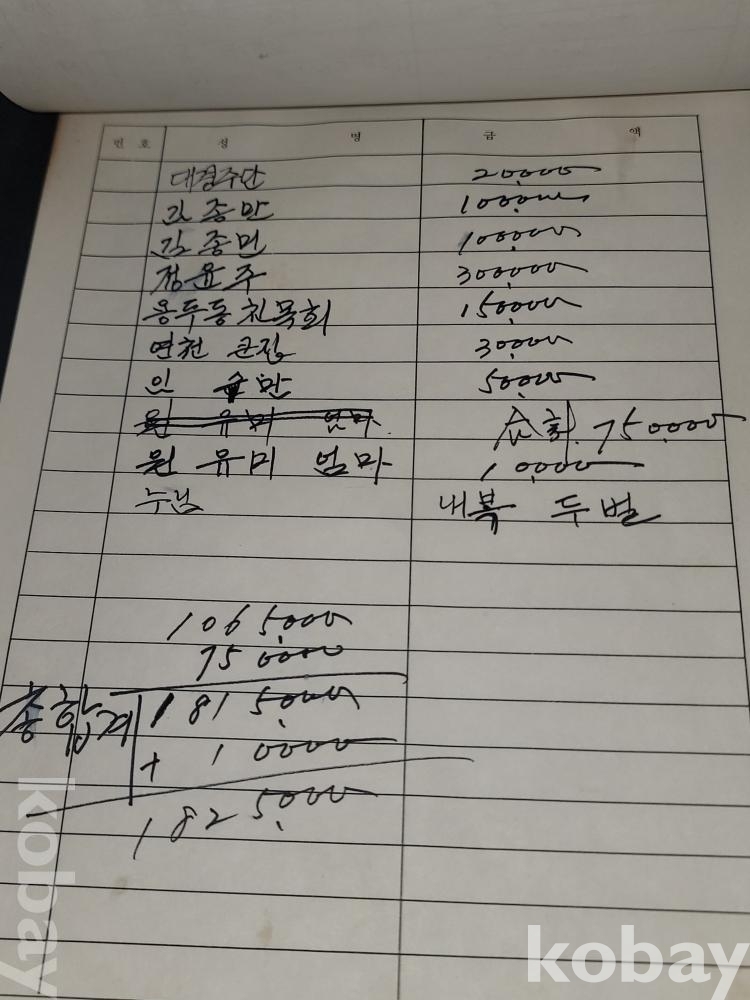 번 호 성 명 금 액
대경주단 20,000
김종만 100,000
김종민 100,000
정윤주 300,000
용두동친목회 150,000
연천 큰집 30,000
인 만 50,000
원 유미 엄마 合計. 750,000
원 유미 엄마 10,000
누님 내복 두벌
1065,000
750000
총합계 1815,000
+ 10000
1825,000
kobay
kobay